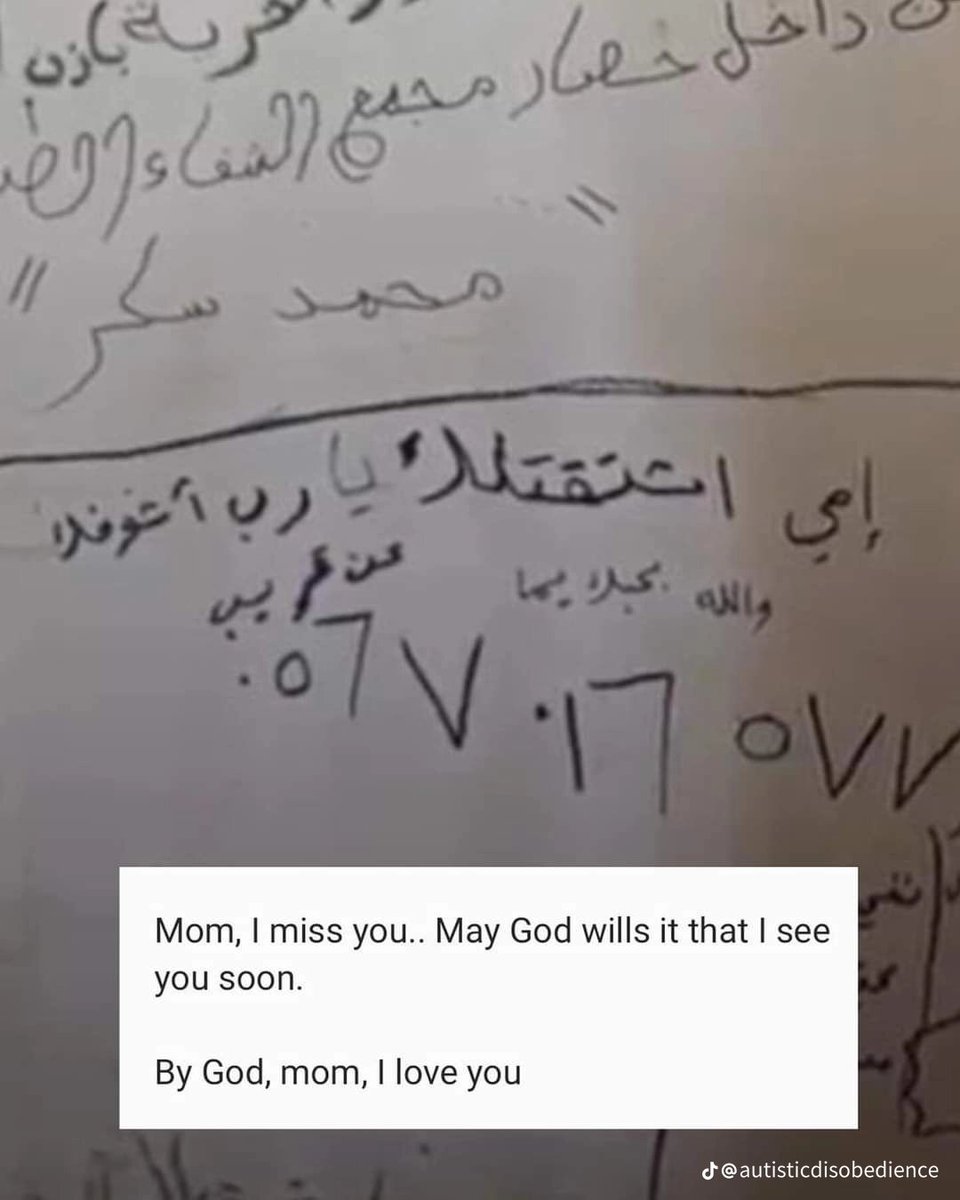 الحرية بإذن
داخل حصار مجمع
الشفاء
"محمد سكر"
إمي اشتقتلك يا رب أشوفك
عن قريب
والله بحبك يما
٠٥٦٧٠١٦٥٧٧
Mom, I miss you.. May God wills it that I see
you soon.
By God, mom, I love you
@autisticdisobedience